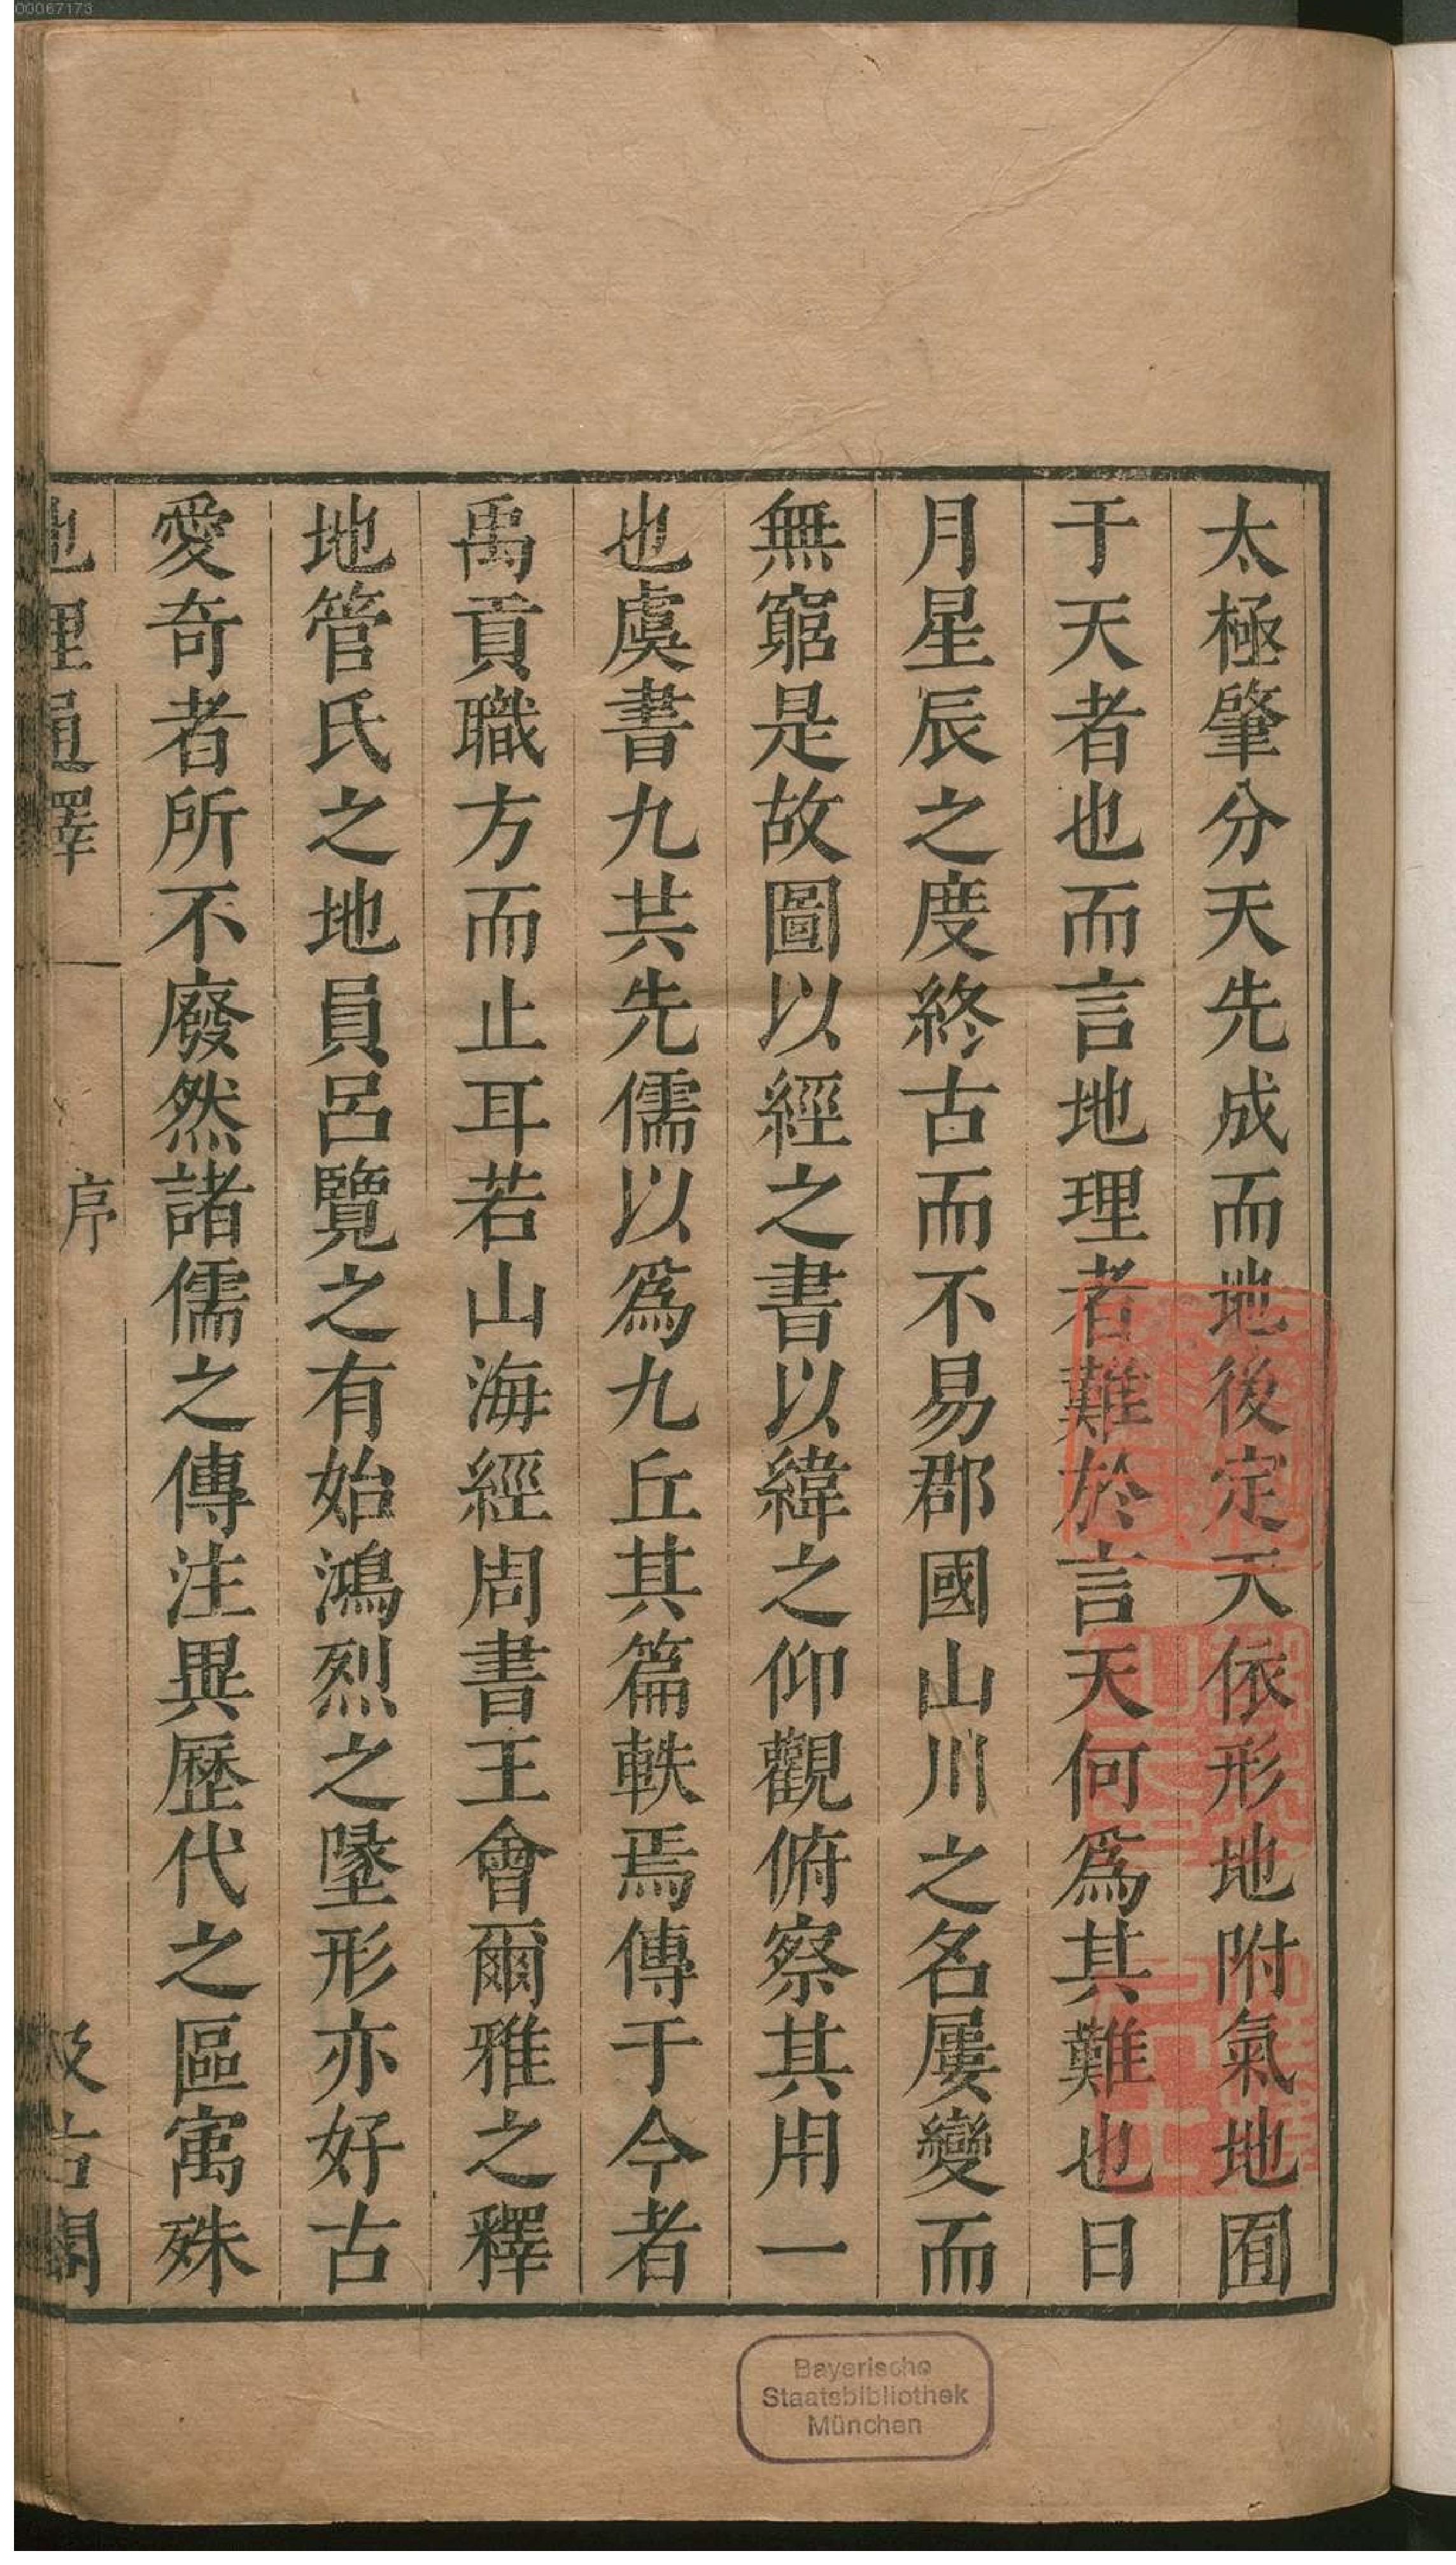 太極肇分天先成而地後定天依形地附氣地囿
于天者也而言地理者難於言天何爲其難也日
月星辰之度終古而不易郡國山川之名屢變而
無窮是故圖以經之書以緯之仰觀俯察其用一
也虞書九共先儒以爲九丘其篇軼焉傳于今者
禹貢職方而止耳若山海經周書王會爾雅之釋
地管氏之地員呂覽之有始鴻烈之墬形亦好古
愛奇者所不廢然諸儒之傳注異歷代之區寓殊
地理通釋 序 汲古閣
Bayerische
Staatsbibliothek
München
00067173